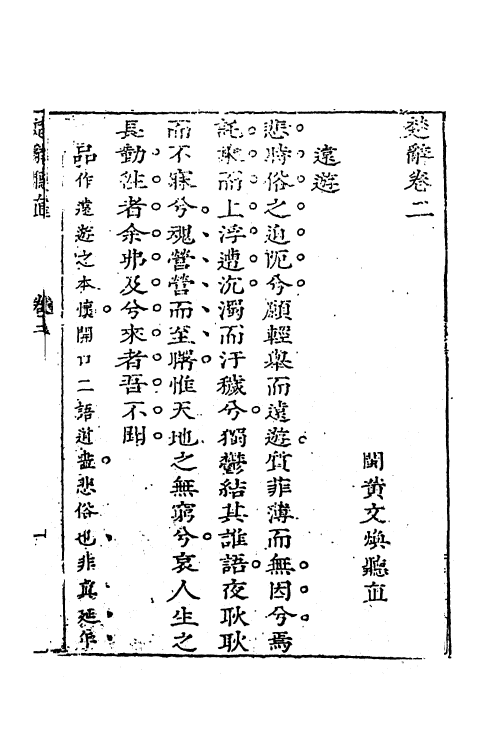 楚辭卷二
閩黃文煥聽直
遠遊
悲時俗之迫阨兮願輕舉而遠遊質菲薄而無因兮焉
託乘而上浮遭沉濁而汙穢兮獨鬱結其誰語夜耿耿
而不寐兮魂營營而至曙惟天地之無窮兮哀人生之
長勤往者余弗及兮來者吾不聞
品作遠遊之本懷開口二語道盡悲俗也非真延年
楚辭聽直
卷二
一